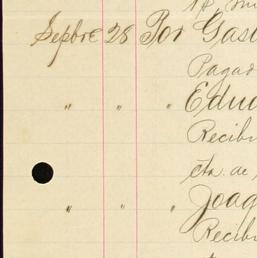 Sepbre 28 Por Gas
Pagad
" " Edua
Recibi
cta. de
" " " Joaq
Recibi